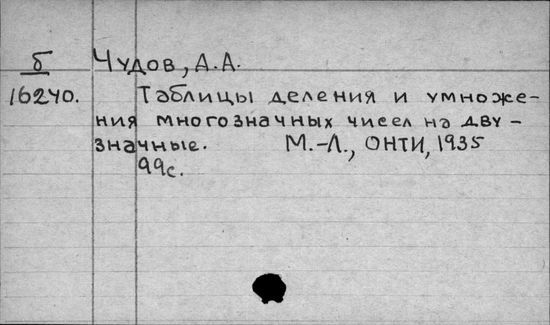 б Чудов, А.А.
16240. Таблицы деления и умноже-
ния многозначных чисел на дву-
значные. М.-Л., ОНТИ, 1935
99с.